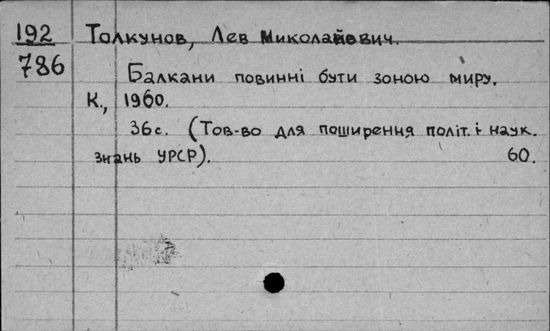 192 Толкунов, Лев Миколайович.
786
Балкани повинні бути зоною миру.
К., 1960.
36с. (Тов-во для поширення політ. і наук.
знань УРСР). 60.